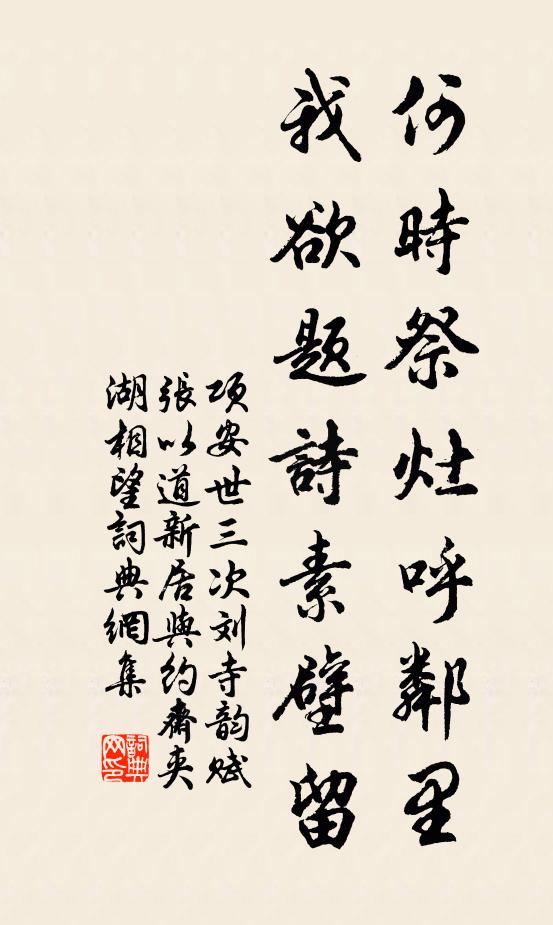 何時祭灶呼鄰里
我欲题詩素壁留
项安世三次刘寺韵赋
張以道新居與約齋夹
湖相望詞典網集
詞典
网印